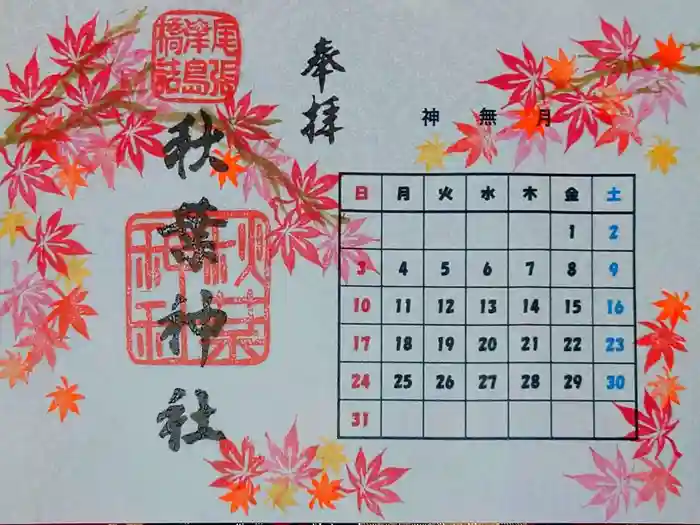 奉拝
尾張
津島
橋詰
秋葉神社
秋葉
神社
神無月
日 月 火 水 木 金 土
1 2
3 4 5 6 7 8 9
10 11 12 13 14 15 16
17 18 19 20 21 22 23
24 25 26 27 28 29 30
31